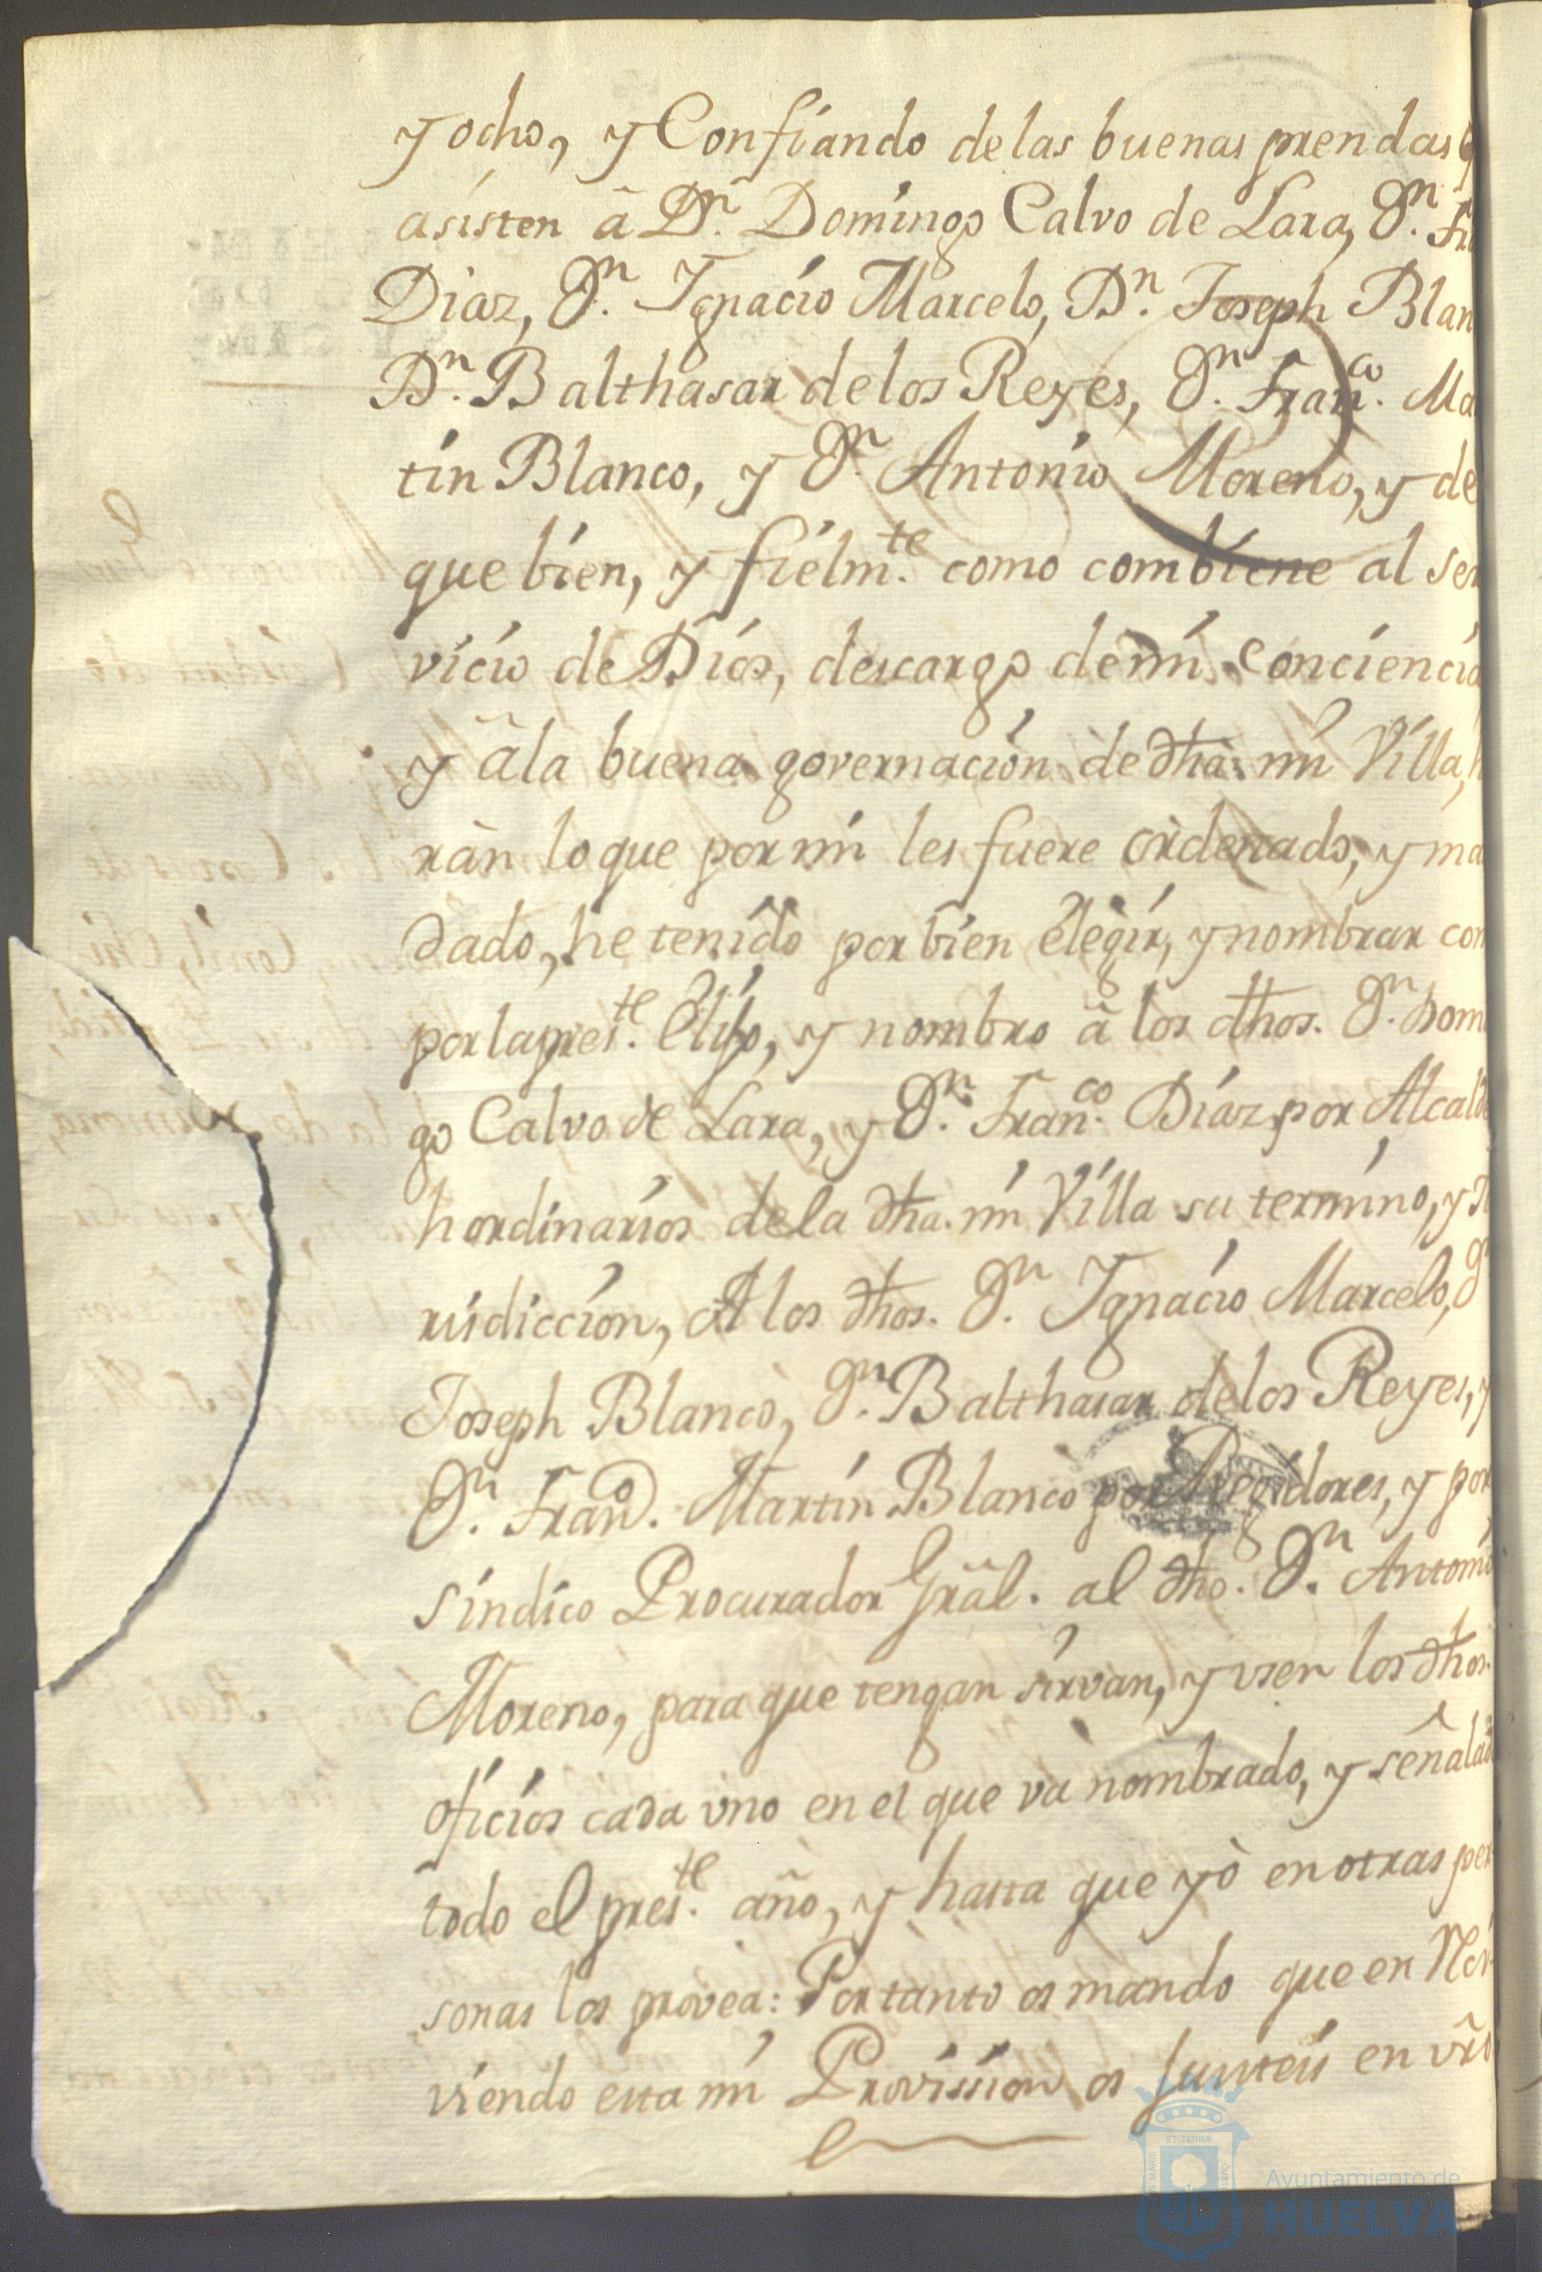 y ocho, y Confiando de las buenas prendas q
asisten â Dn. Domingo Calvo de Lara, Dn. Fra
Diaz, Dn. Ignacio Marcelo, Dn. Joseph Blan
Dn. Balthasar de los Reyes, Dn. Franco. Ma
tin Blanco, y Dn. Antonio Moreno, y de
que bien, y fielmte. como combiene al ser
vicio de Dios, descargo de mi conciencia
y â la buena governacion de dha. mi Villa, h
ràn lo que por mi les fuere ordenado, y ma
dado, he tenido por bien elegir, y nombrar com
por la preste. Elijo, y nombro â los dhos. Dn. Domi
go Calvo de Lara, y Dn. Franco. Diaz por Alcalde
hordinarios de la dha. mi Villa su termino, y Ju
risdiccion, A los dhos. Dn. Ignacio Marcelo, Dn
Joseph Blanco, Dn. Balthasar de los Reyes, y
Dn. Franco. Martin Blanco por Regidores, y por
sindico Procurador Grâl. al dho. Dn. Antonio
Moreno, para que tengan sirvan, y usen los dhos.
oficios cada vno en el que và nombrado, y señalado
todo el preste. año, y hasta que yò en otras per
sonas los provea: Por tanto os mando que en Reci
viendo esta mi Provission os Junteis en vrõ
ET TERRAE
MARIS
CUSTOS
Ayuntamiento de
HUELVA